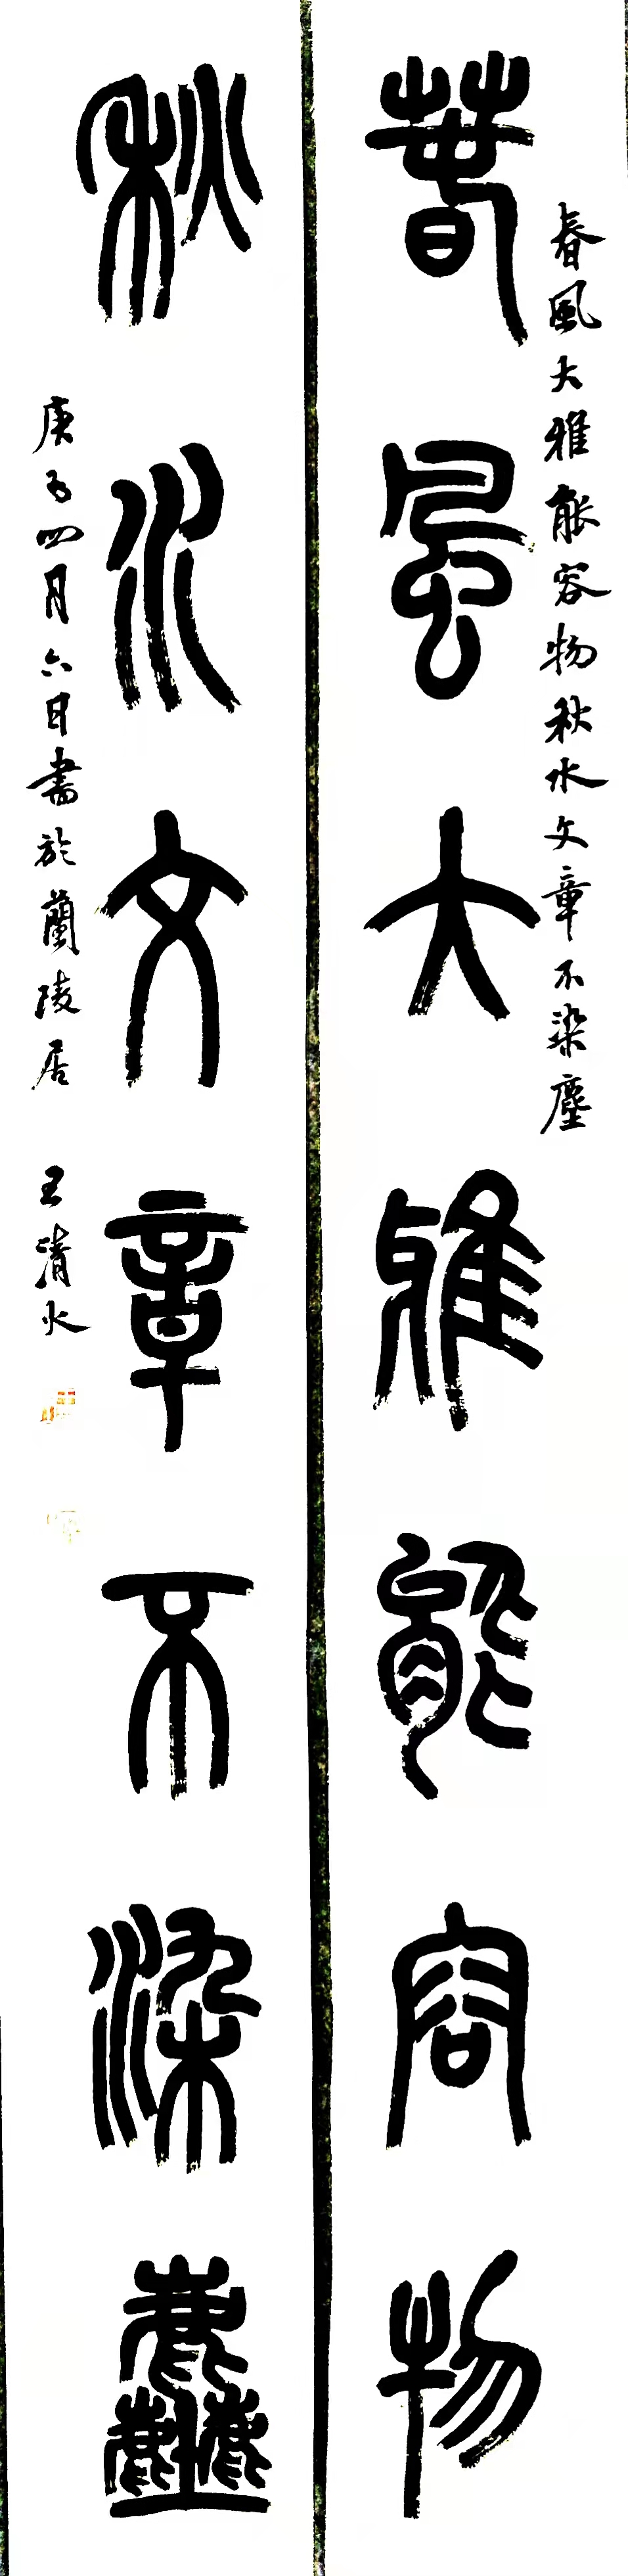 春風大雅能容物秋水文章不染塵
春風大雅能容物
秋水文章不染塵
庚子四月六日書於蘭陵居 王清水